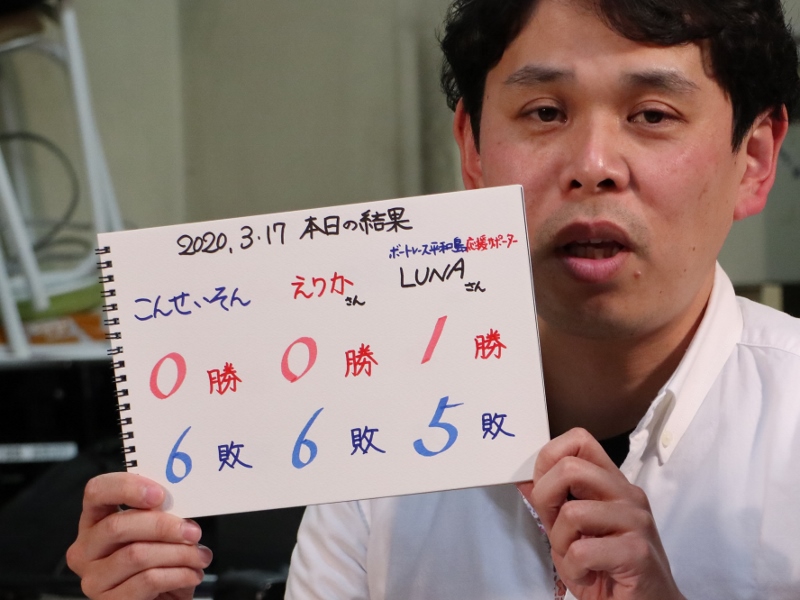 2020.3.17 本日の結果
こんせいそん
えりかさん
ボートレース平和島応援サポーター
LUNAさん
0勝 0勝 1勝
6敗 6敗 5敗